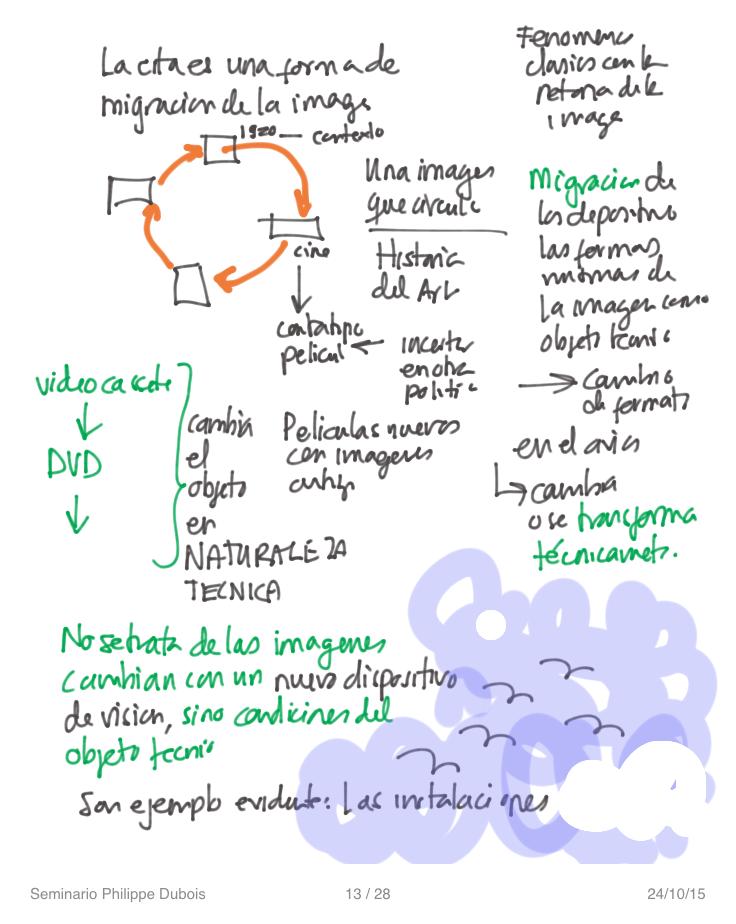 La cita es una forma de
migracion de la image
1920 — contexto
cine
Una imagen
que circule
Historia
del Arte
Fenomenos
clasicos con la
retoma de la
image
Migracion de
los dispositivos
las formas
mismas de
la imagen como
objeto tecnico
Cambio
de formato
en el
cambia
o se transforma
técnicamente.
pelicul
insertar
en otra
politic
videocassete
DVD
cambia
el
objeto
en
NATURALEZA
TECNICA
Peliculas nuevas
con imagenes
No se trata de las imagenes
cambian con un nuevo dispositivo
de vision, sino condicines del
objeto tecni
Son ejemplo evidente: las instalaciones
Seminario Philippe Dubois
13 / 28
24/10/15